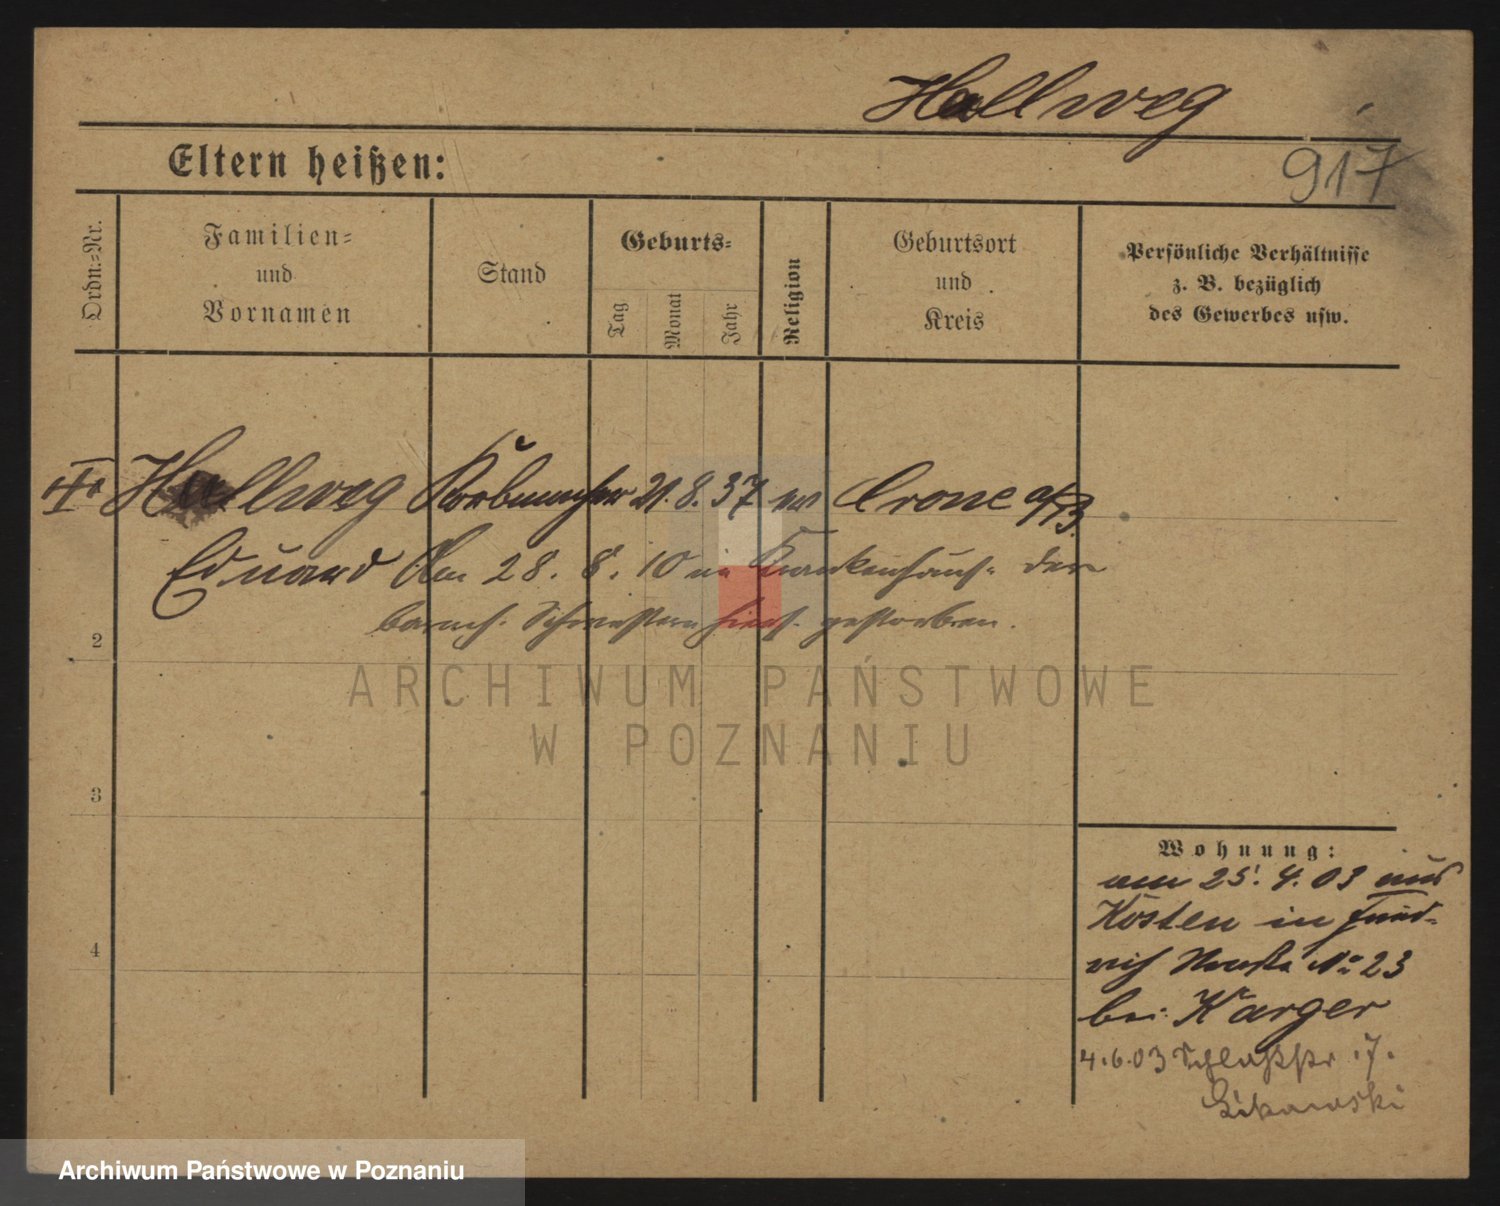 Hallweg
917
Eltern heißen:
Ordn.-Nr.
Familien-
und
Vornamen
Stand
Geburts-
Tag
Monat
Jahr
Religion
Geburtsort
und
Kreis
Persönliche Verhältnisse
z. B. bezüglich
des Gewerbes usw.
Hallweg Korbmacher 21. 8. 37 Crone a/B.
Eduard Am 28. 8. 10 im Krankenhaus der
barmh. Schwestern hies. gestorben.
2
3
4
Wohnung:
am 25. 4. 03 aus
Kosten in Fried-
rich Straße No 23
bei Karger
4.6.03 Schloßstr. 7.
ARCHIWUM PAŃSTWOWE
W POZNANIU
Archiwum Państwowe w Poznaniu